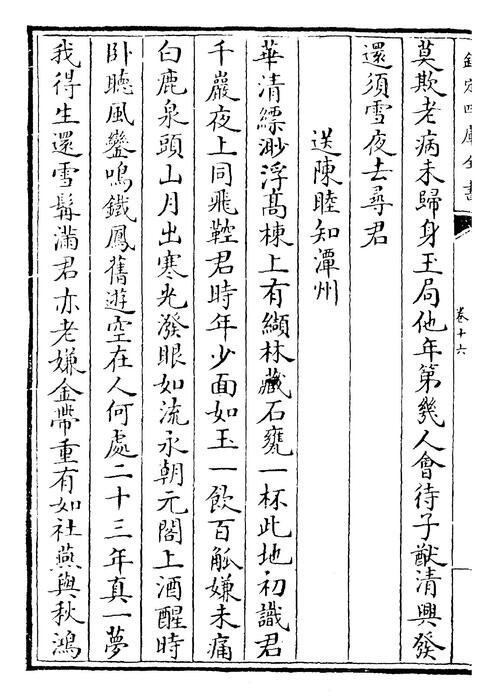 欽定四庫全書
卷十六
莫欺老病未歸身玉局他年第幾人會待子猷清興發
還須雪夜去尋君
送陳睦知潭州
華清縹渺浮髙棟上有纈林藏石甕一杯此地初識君
千巖夜上同飛鞚君時年少面如玉一飲百觚嫌未痛
白鹿泉頭山月出寒光潑眼如流永朝元閣上酒醒時
卧聽風鑾鳴鐵鳳舊遊空在人何處二十三年真一夢
我得生還雪髯滿君亦老嫌金帶重有如社燕與秋鴻